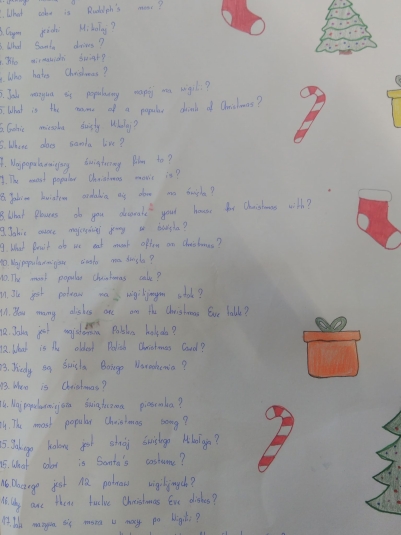 2. What color is Rudolph's nose?
3. Czym jeździ Mikołaj?
3. What Santa drives?
4. Kto nienawidzi świąt?
4. Who hates Christmas?
5. Jak nazywa się popularny napój na wigilii?
5. What is the name of a popular drink at Christmas?
6. Gdzie mieszka święty Mikołaj?
6. Where does santa live?
7. Najpopularniejszy świąteczny film to?
7. The most popular Christmas movie is?
8. Jakim kwiatem ozdabia się dom na święta?
8. What flowers do you decorate your house for Christmas with?
9. Jakie owoce najczęściej jemy w święta?
9. What fruit do we eat most often on Christmas?
10. Najpopularniejsze ciasto na święta?
10. The most popular Christmas cake?
11. Ile jest potraw na wigilijnym stole?
11. How many dishes are on the Christmas Eve table?
12. Jaka jest najstarsza Polska kolęda?
12. What is the oldest Polish Christmas Carol?
13. Kiedy są święta Bożego Narodzenia?
13. When is Christmas?
14. Najpopularniejsza świąteczna piosenka?
14. The most popular Christmas song?
15. Jakiego koloru jest strój świętego Mikołaja?
15. What color is Santa's costume?
16. Dlaczego jest 12 potraw wigilijnych?
16. Why are there twelve Christmas Eve dishes?
17. Jak nazywa się msza w nocy po Wigilii?